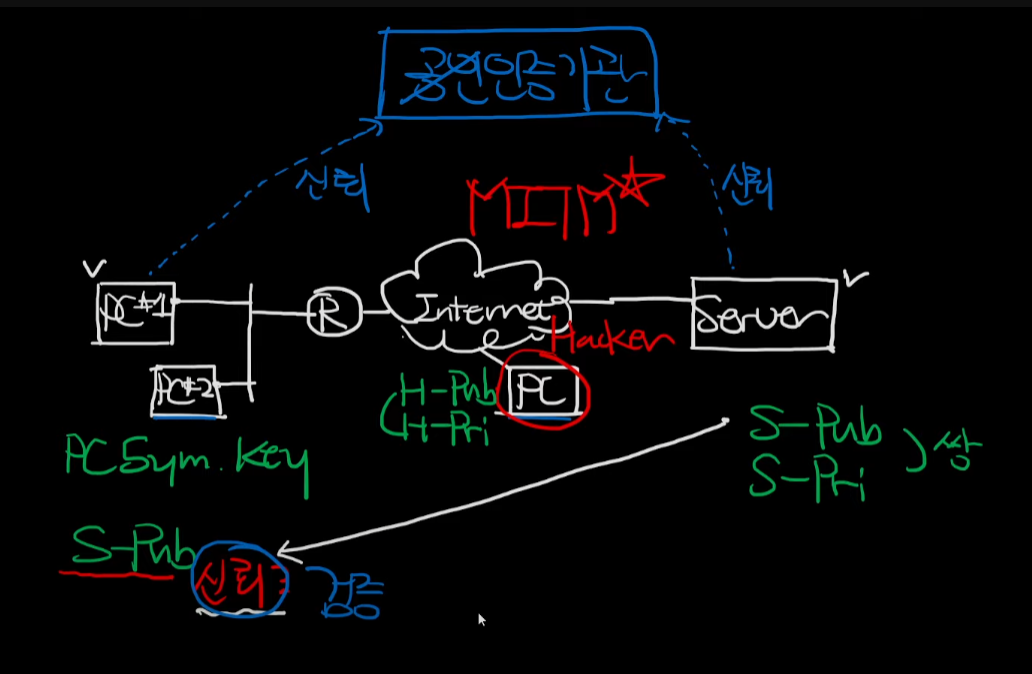 공인인증기관
신뢰
신뢰
MITM
PC#1
R
Internet
Server
Hacker
PC#2
H-Pub
H-Pri
PC
PC Sym. Key
S-Pub
S-Pri
쌍
S-Pub
신뢰
검증